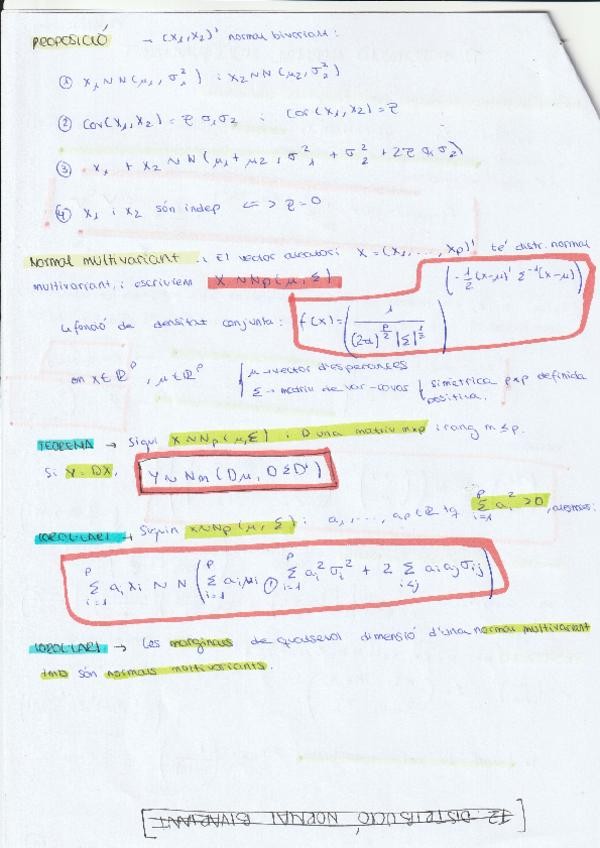 PROPOSICIÓ → (X₁,X₂)' normal bivariant:
① X₁ ~ N(μ₁, σ₁²) i X₂ ~ N(μ₂, σ₂²)
② Cov(X₁,X₂) = ρ σ₁σ₂ i Cor(X₁,X₂) = ρ
③ X₁ + X₂ ~ N(μ₁+μ₂, σ₁² + σ₂² + 2ρ σ₁σ₂)
④ X₁ i X₂ són indep <=> ρ=0
Normal multivariant: El vector aleatori X = (X₁, ..., Xp)' té distr. normal
multivariant, i escriurem X ~ Np(μ, Σ)
(-1/2 (x-μ)' Σ⁻¹ (x-μ))
funció de densitat conjunta: f(x) = (1 / (2π)^(p/2) |Σ|^(1/2))
on x∈ℝᵖ, μ∈ℝᵖ { μ → vector d'esperances
Σ → matriu de var-covar { simètrica pxp definida
positiva.
TEOREMA → Sigui X~Np(μ,Σ) i D una matriu mxp i rang m≤p.
Si Y=DX, Y ~ Nm(Dμ, DΣD')
COROL·LARI → Siguin X~Np(μ,Σ) i a₁, ..., ap∈ℝ tq Σᵢ₌₁ᵖ aᵢ² > 0, aleshores:
Σᵢ₌₁ᵖ aᵢxᵢ ~ N(Σᵢ₌₁ᵖ aᵢμᵢ, Σᵢ₌₁ᵖ aᵢ²σᵢ² + 2 Σᵢ≤ⱼ aᵢaⱼσᵢⱼ)
COROL·LARI → Les marginals de qualsevol dimensió d'una normal multivariant
tmb són normals multivariants.
[T2: DISTRIBUCIÓ NORMAL BIVARIANT]